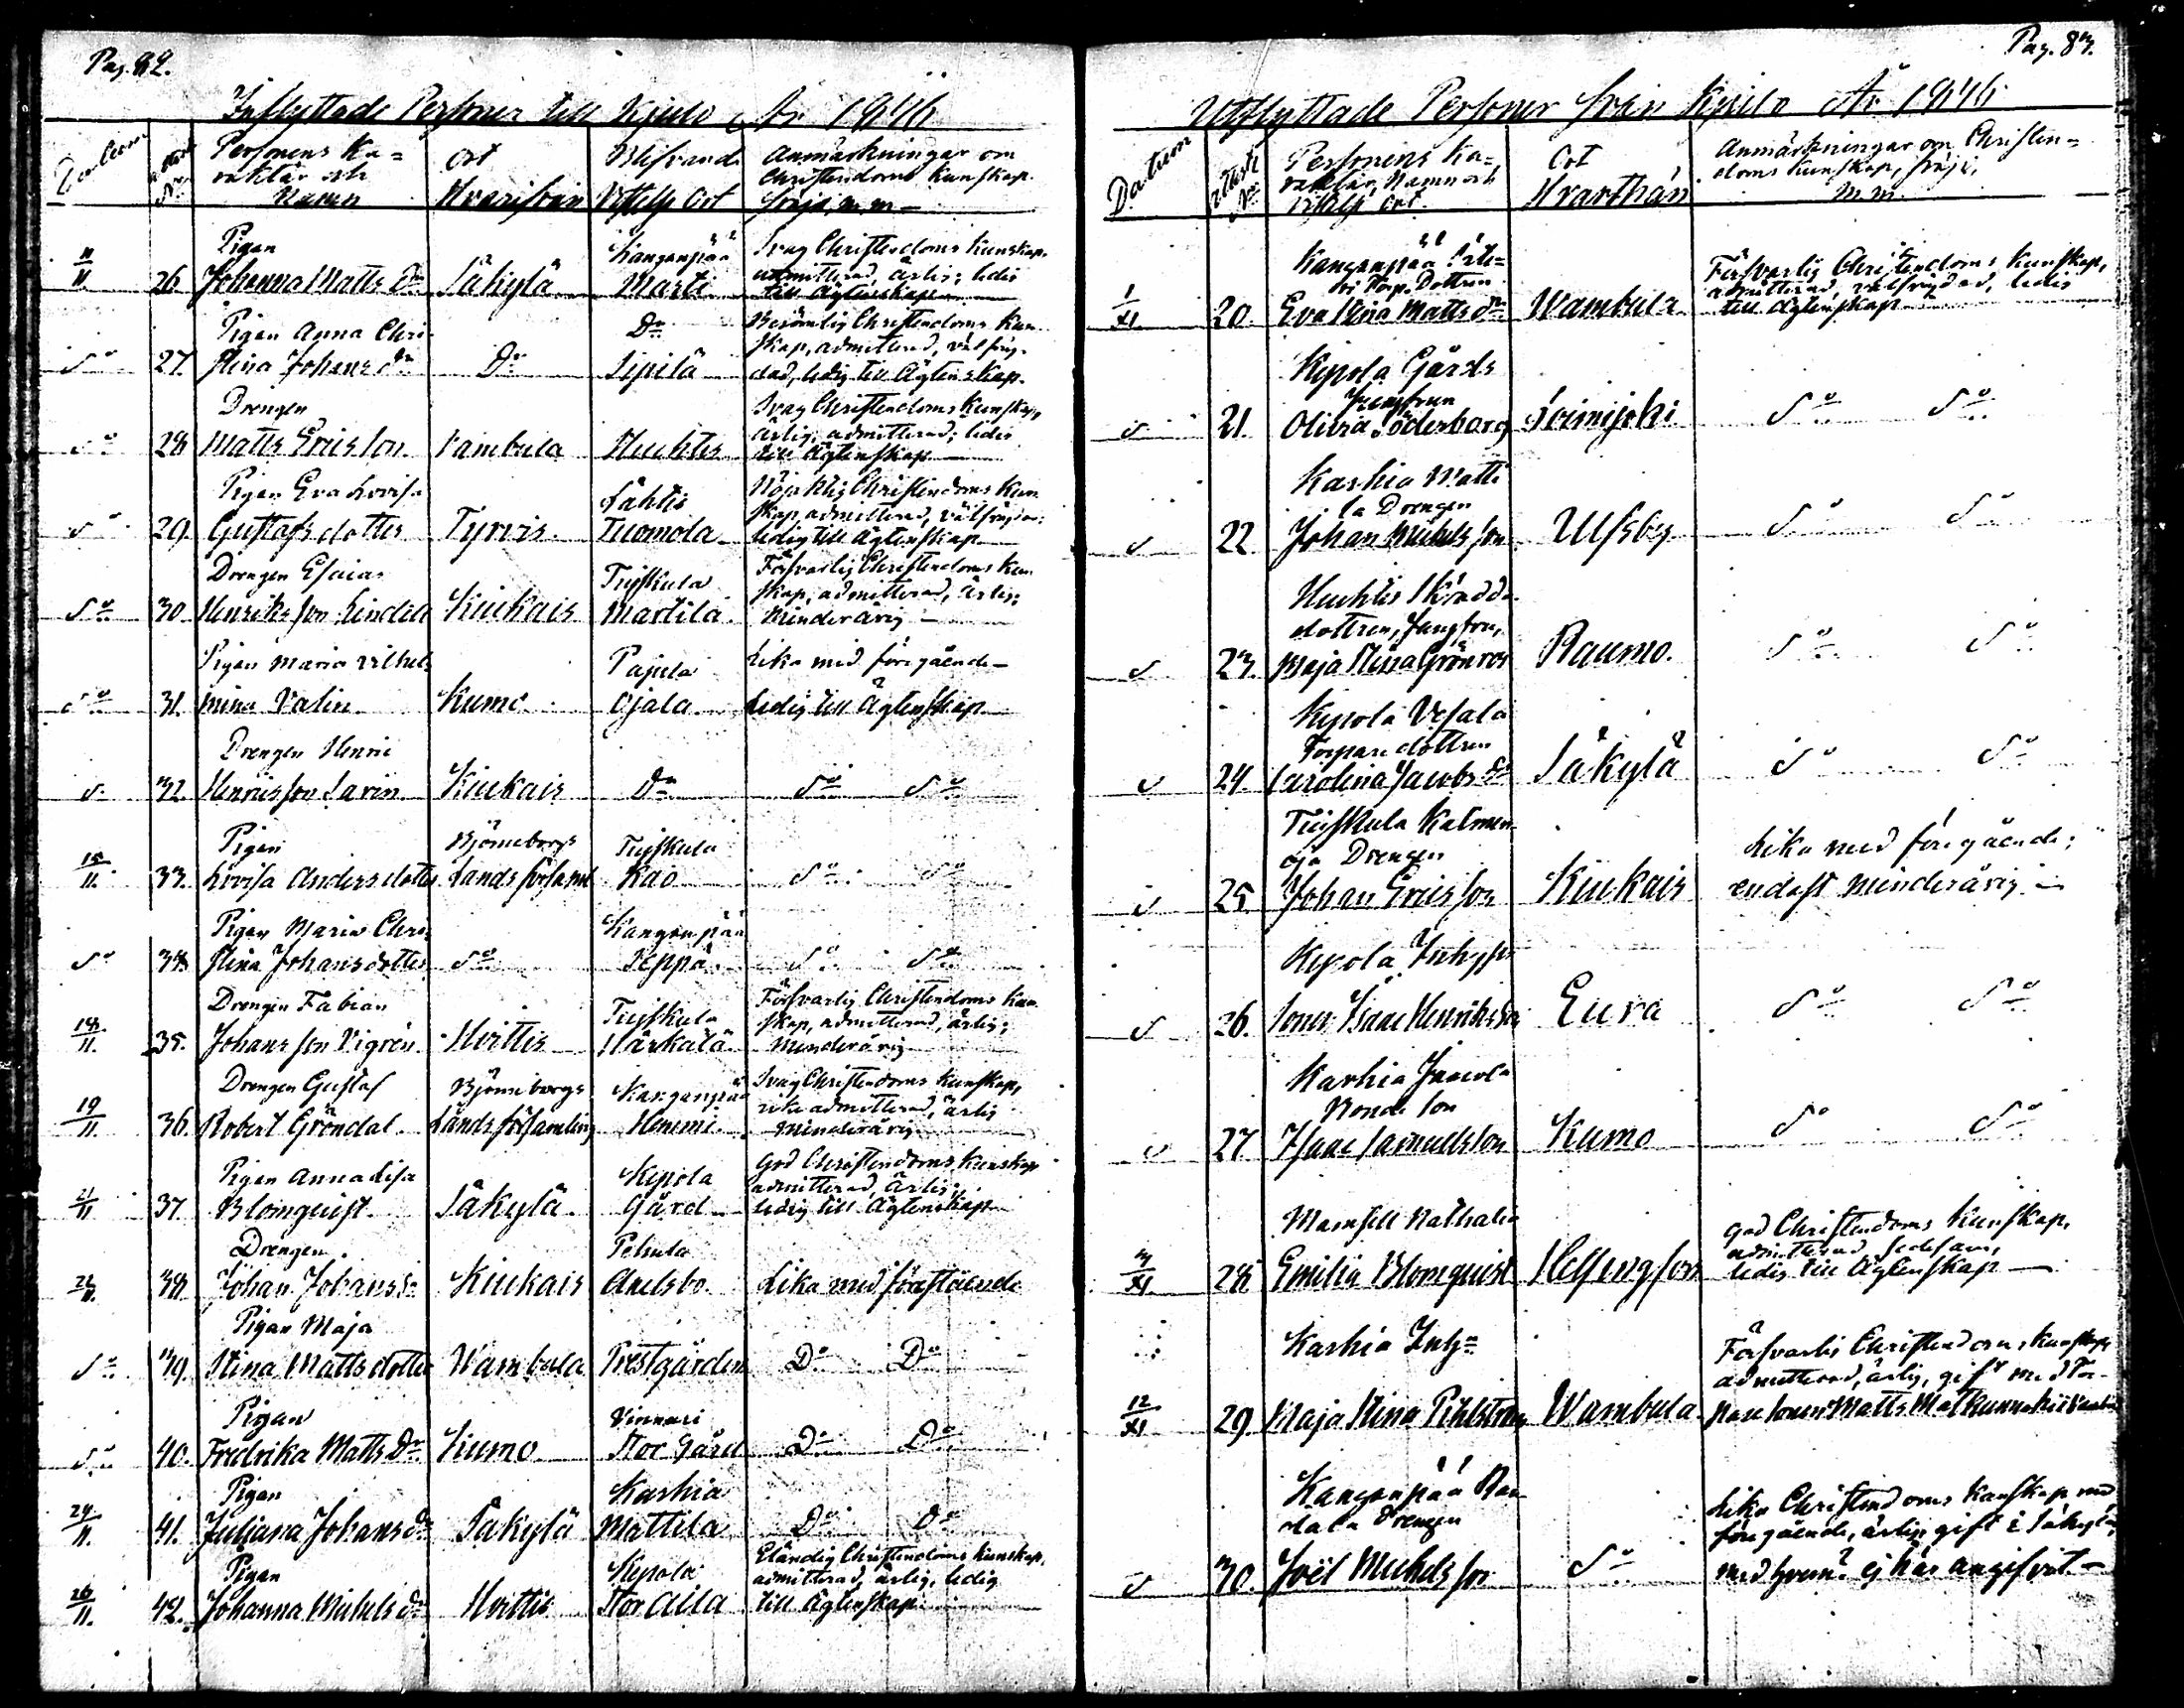 Pag. 82.
Inflyttade Personer till Kjulo År 1846
Datum
Personens Ka=
raktär och
Namn
Ort
Hvarifrån
Blifvande
Vistelse Ort
Anmärkningar om
Christendoms Kunskap
frejd, m.m.
11/11. 26 Pigan
Johanna Matts Dr Säkylä Kanganpää
Marti Svag Christendoms Kunskap.
admitterad, ärlig; ledig
till Ägtenskap
Do 27. Pigan Anna Chri-
stina Johans dr Do Do
Sipilä Berömlig Christendoms Kun-
skap, admitterad, välfräj-
dad, ledig till Ägtenskap.
Do 28 Drengen
Matts Ericsson Vambula Huchtis Svag Christendoms Kunskap,
ärlig, admitterad; ledig
till Ägtenskap
Do 29. Pigan Eva Lovisa
Gustafsdotter Tyrvis. Lähtis
Tuomola Nöjaktig Christendoms Kun
skap admitterad, välfräjdad;
ledig till Ägtenskap
Do 30. Drengen Esaias
Henriksson Lindell Kiukais Tujskula
Martila Försvarlig Christendoms Kun
skap, admitterad, ärlig;
Minderårig
Do 31. Pigan Maria Vilhel-
mina Valin Kumo Pajula
Ojala Lika med föregående
Ledig till Ägtenskap
Do 32 Drengen Henric
Henricsson Savin Kiukais Do Do Do
15/11. 33. Pigan
Lovisa Andersdotter Björneborgs
Landsförsaml Tujskula
Kao Do Do
Do 34 Pigan Maria Chri-
stina Johansdotter Do Kangenpää
Seppä Do Do
18/11. 35. Drengen Fabian
Johansson Vigrén Hvittis Tujskula
Härkälä Försvarlig Christendoms Kun
skap, admitterad, ärlig;
Minderårig
19/11. 36. Drengen Gustaf
Robert Gröndal. Björneborgs
Landsförsamling Kangenpää
Hemmi Svag Christendoms Kunskap,
icke admitterad, ärlig
Minderårig
21/11 37. Pigan Anna Lisa
Blomquist Säkylä. Kepola
Gård God Christendoms Kunskap
admitterad, Ärlig;
ledig till Ägtenskap
38 Drengen
Johan Johansson Kiukais Pehula
Axelsbo. Lika med föreståënde
Do 39. Pigan Maja
Stina Mattsdotter Wambula Prestgården Do Do
Do 40. Pigan
Fredrika Matts Dr Kumo Vinnari
Stor Gård Do Do
24/11. 41. Pigan
Juliana Johans dr Säkylä Karhia
Mattila Do Do
26/11. 42. Pigan
Johanna Michels dr Hvittis Kepola
Stor Aila Eländig Christendoms Kunskap,
admitterad, ärlig, ledig
till Ägtenskap
Pag. 83.
Utflyttade Personer från Kjulo År 1846
Datum
Personens Ka=
raktär, Namn och
Ort
Hvarthän
Anmärkningar om Christen=
doms Kunskap, fräjd,
m.m.
1/XI. 20. Kangenpää
Torp. Dottren
Eva Stina Matts dr Wambula Försvarlig Christendoms Kunskap,
admitterad, välfräjdad, ledig
till Ägtenskap
21. Kepola Gårds
Jungfrun
Olivia Söderberg Loimijoki Do Do
22 Karhia Matti
la Drengen
Johan Michelsson Ulfsby Do Do
23. Huchtis Skrädd.
dottren, Jungfru,
Maja Stina Grönroos Raumo. Do Do
24. Kepola Vesala
Torpare dottren
Carolina Jacobs dr Säkylä Do Do
25 Tujskula Kalmen-
oja Drengen
Johan Ericsson Kiukais Lika med föregående;
endast minderårig
26. Kepola Inhyses
Sonen Isaac Henriksson Eura Do Do
27 Karhia Jaacola
Bonde Son
Isaac Samuelsson Kumo Do Do
28 Mamsell Nathalia
Emilia Blomquist Helsingfors God Christendoms Kunskap,
admitterad, sedesam,
ledig till Ägtenskap
12/XI 29. Karhia Inhs
Maja Stina Pihlström Wambula Försvarlig Christendoms Kunskap
admitterad, ärlig, gift med Tor-
pare Sonen Matts
30. Kangenpää Rau
dala Drengen
Joël Michelsson Do Lika Christendoms Kunskap med
föregående, ärlig, gift i Säkylä,
med hvem? ej här angifvit.